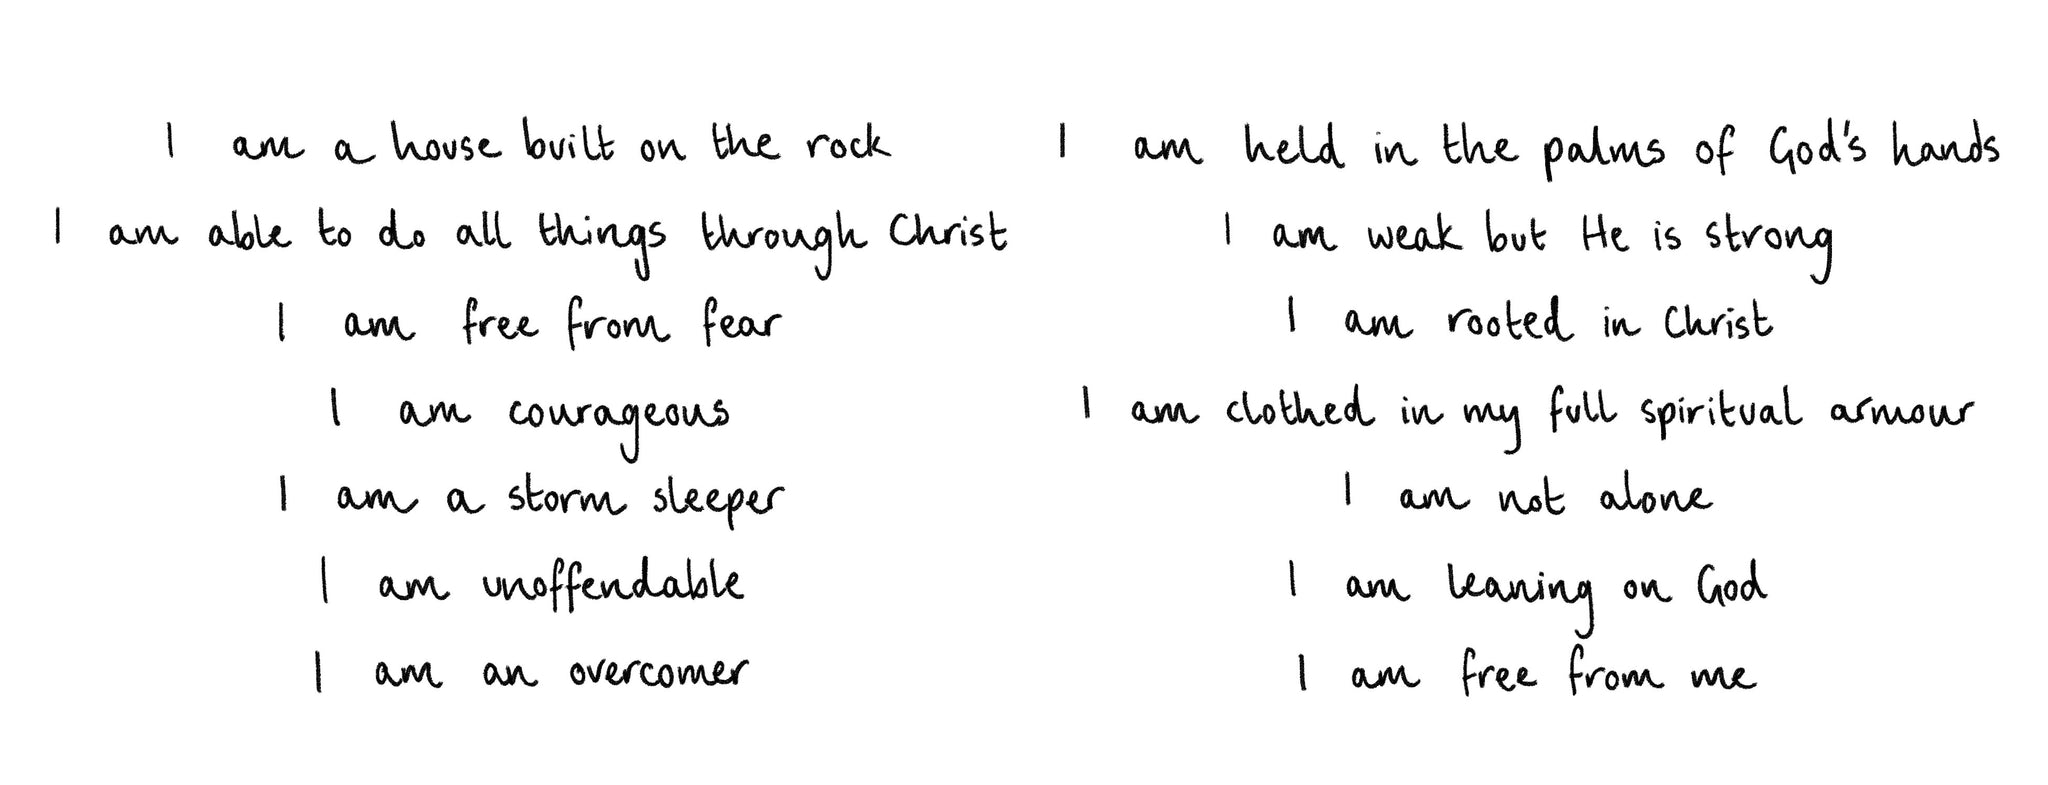 I am a house built on the rock
I am able to do all things through Christ
I am free from fear
I am courageous
I am a storm sleeper
I am unoffendable
I am an overcomer
I am held in the palms of God's hands
I am weak but He is strong
I am rooted in Christ
I am clothed in my full spiritual armour
I am not alone
I am leaning on God
I am free from me